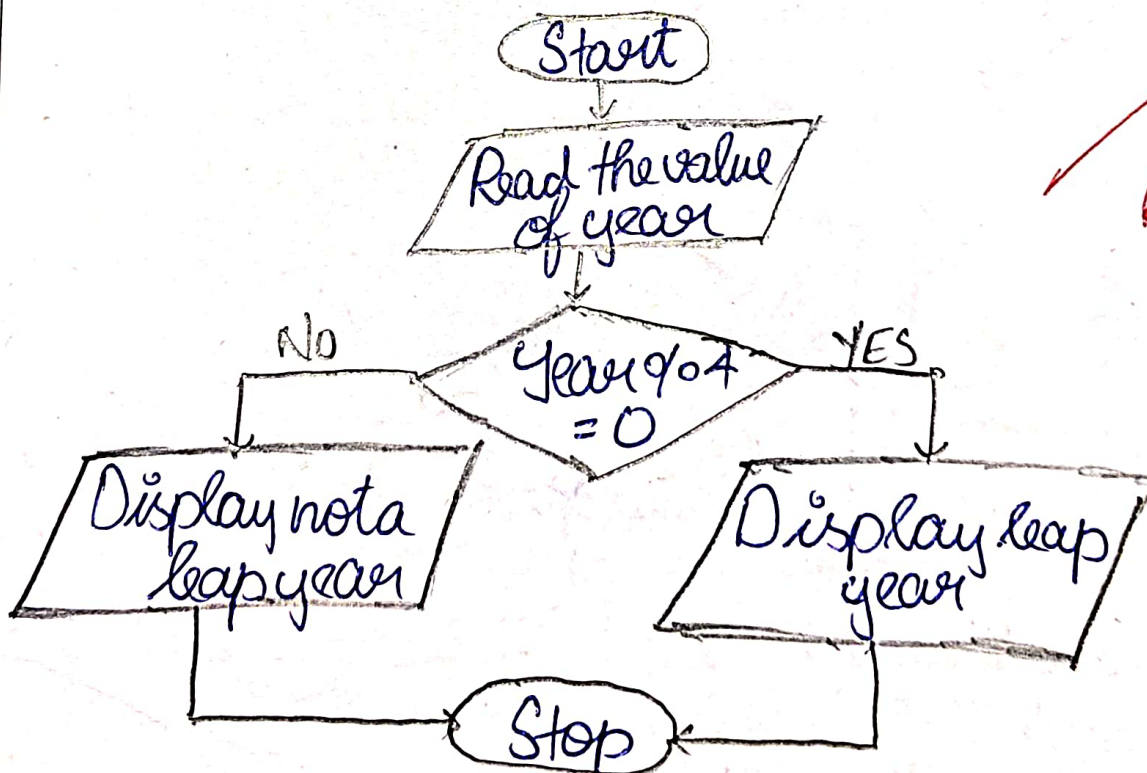 Start
Read the value
of year
NO
Year%4
= 0
YES
Display not a
leap year
Display leap
year
Stop